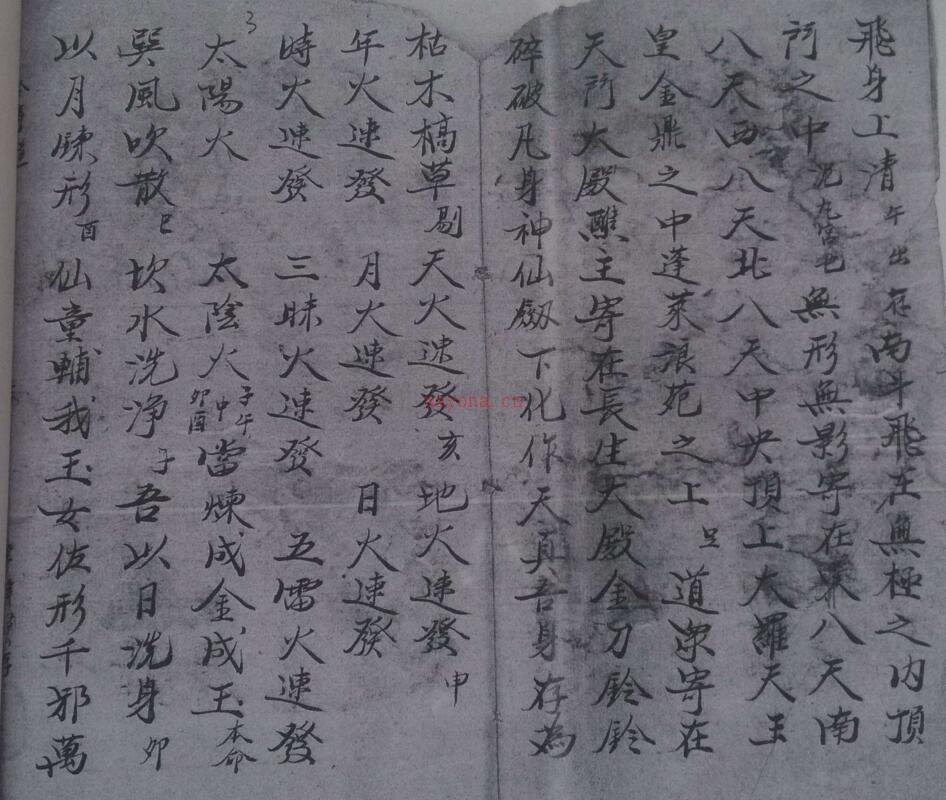 飛身上清午出存南斗飛在無極之内頂
門之中泥丸宮屯無形無影寄在東八天南
八天西八天北八天中央頂上大羅天玉
皇金鼎之中蓬萊閬苑之上 道衆寄在
天門大殿醮主寄在長生大殿金刀鈴鈴
碎破凡身神仙劔下化作天真吾身存為
枯木槁草剔天火速發亥地火速發申
年火速發月火速發日火速發
時火速發三昧火速發五雷火速發
太陽火太陰火子午中卯酉當煉成金成玉本命
巽風吹散巳坎水洗净子吾以日洗身卯
以月煉形酉仙童輔我玉女佐形千邪萬
nayona.cn